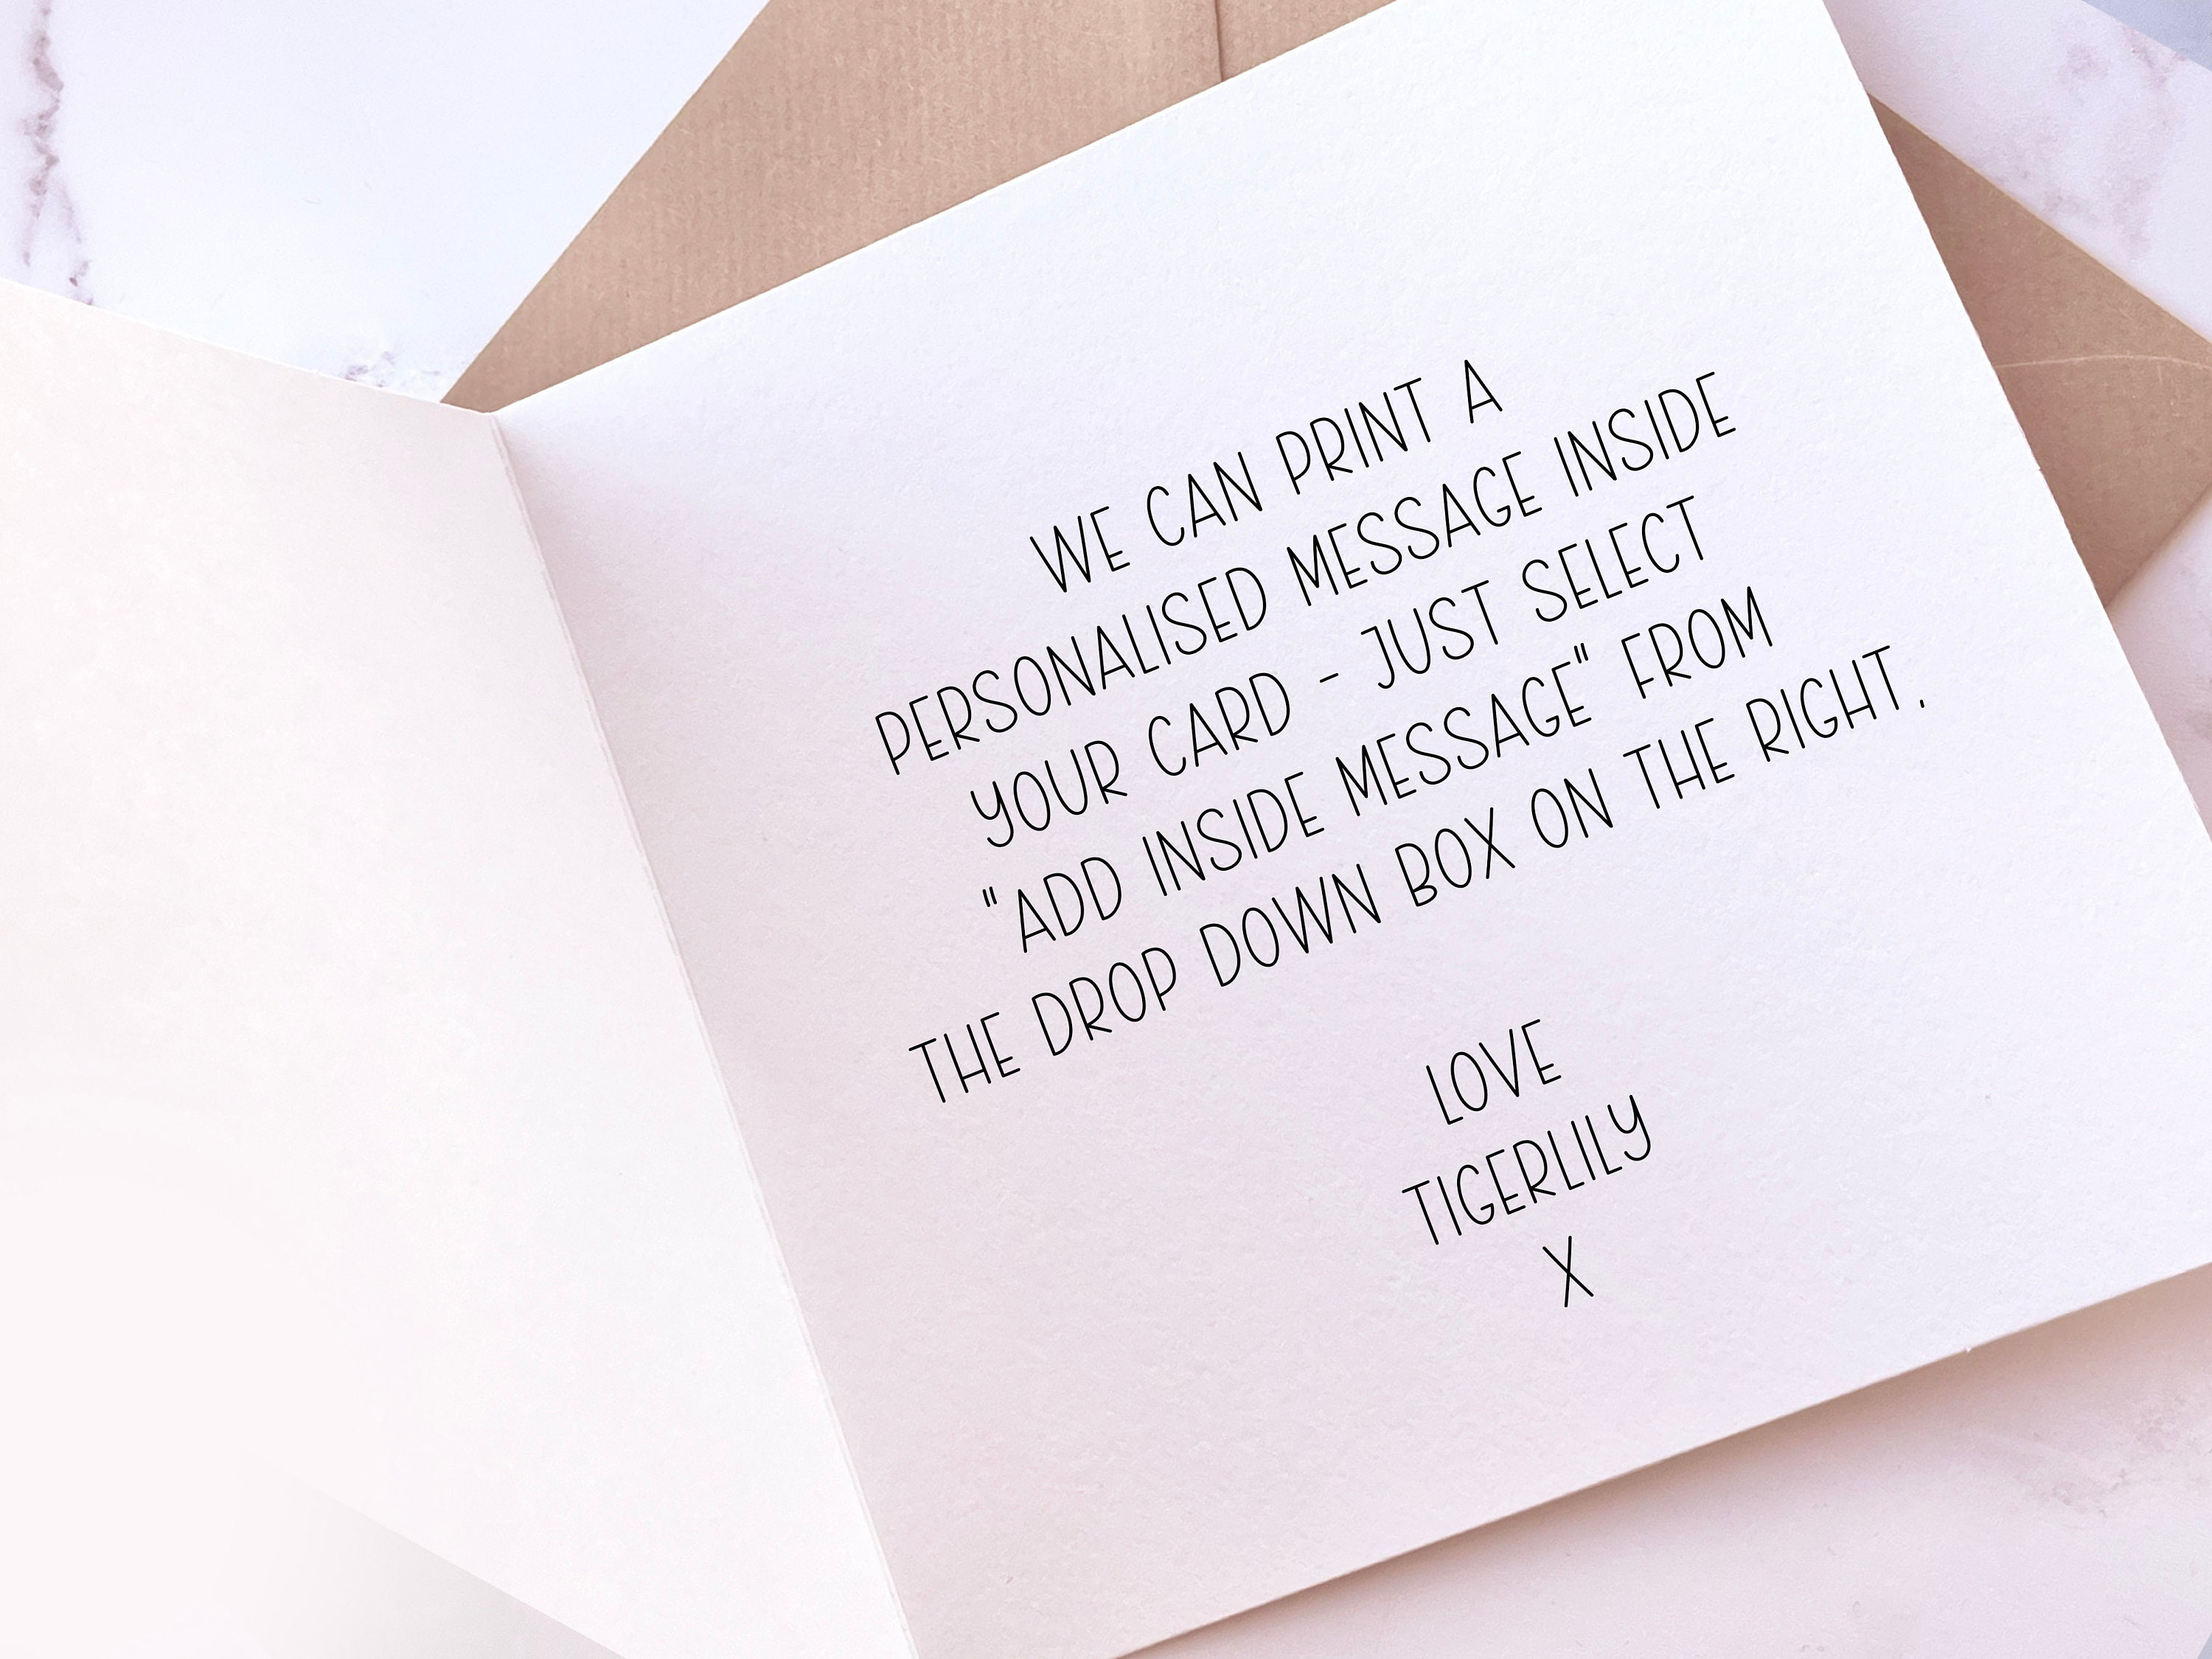 WE CAN PRINT A
PERSONALISED MESSAGE INSIDE
YOUR CARD - JUST SELECT
"ADD INSIDE MESSAGE" FROM
THE DROP DOWN BOX ON THE RIGHT.
LOVE
TIGERLILY
X